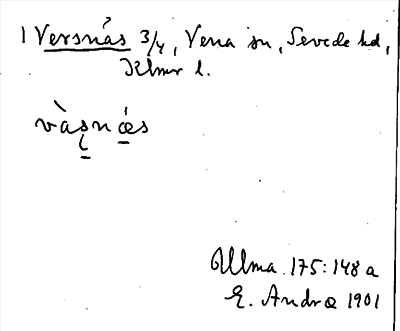 1 Versnäs 3/4, Vena sn, Sevede hd,
Klmr l.
vàşnǽs
Ulma 175:148 a
E. Andræ 1901